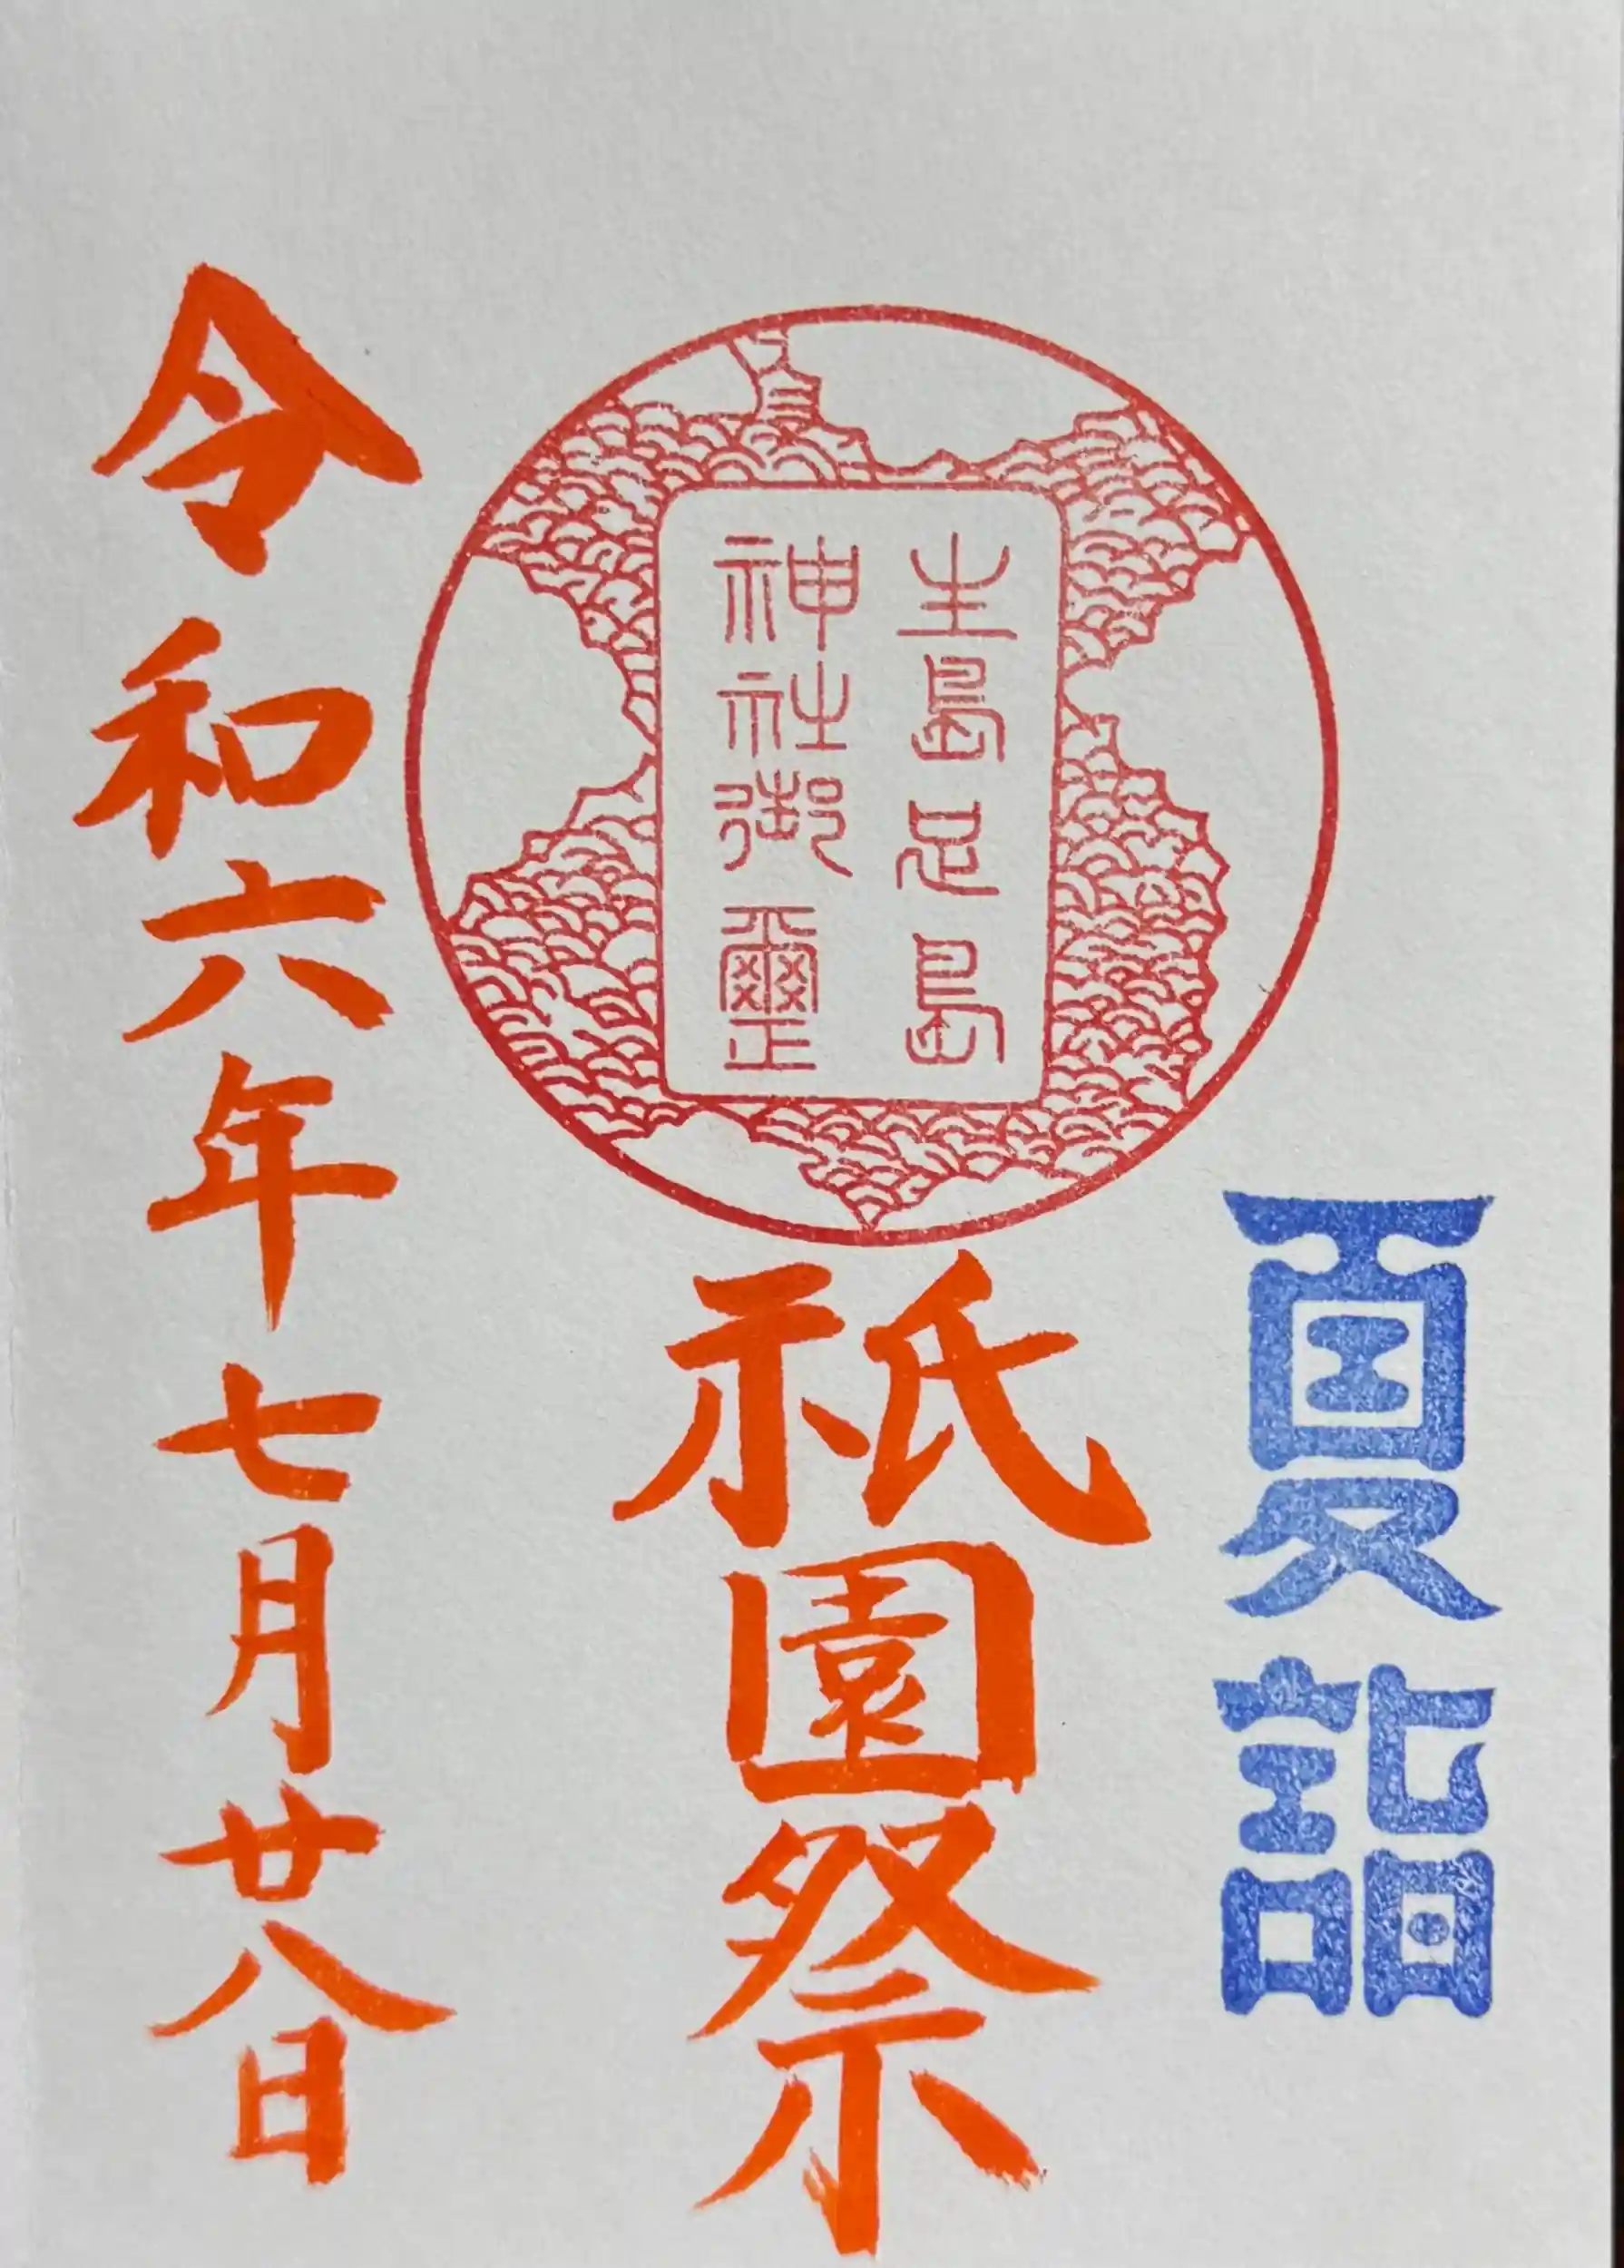 夏詣
生島足島
神社御璽
祇園祭
令和六年七月廿八日